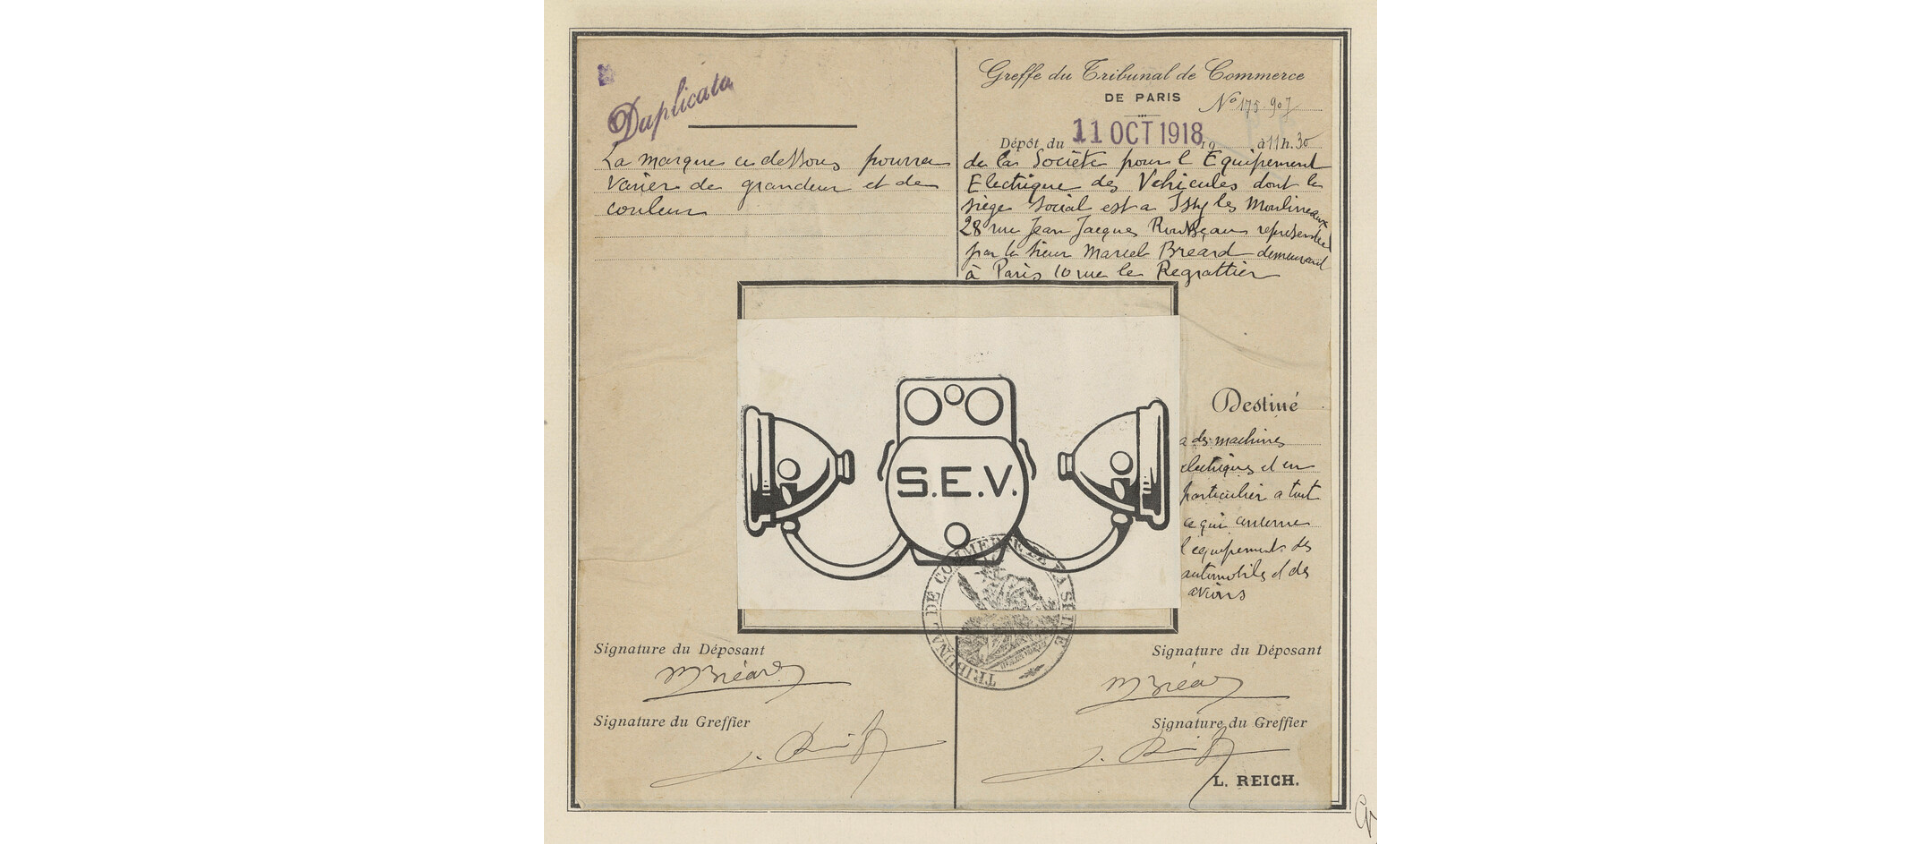 Duplicata
La marque ci dessous pourra
varier de grandeur et de
couleur
Greffe du Tribunal de Commerce
DE PARIS
No 175.907
Dépôt du 11 OCT 1918 19 à 11h.30
de la Société pour l'Equipement
Electrique des Vehicules dont le
siège social est a Issy les Moulineaux
28 rue Jean Jacques Rousseau representée
par le sieur Marcel Breard demeurant
à Paris 10 rue le Regrattier
S.E.V.
Destiné
a des machines
electriques et en
particulier a tout
ce qui concerne
l'equipements des
automobiles et des
avions
TRIBUNAL DE COMMERCE DE LA SEINE
Signature du Déposant
M Bréard
Signature du Greffier
Signature du Déposant
M Bréard
Signature du Greffier
L. REICH.